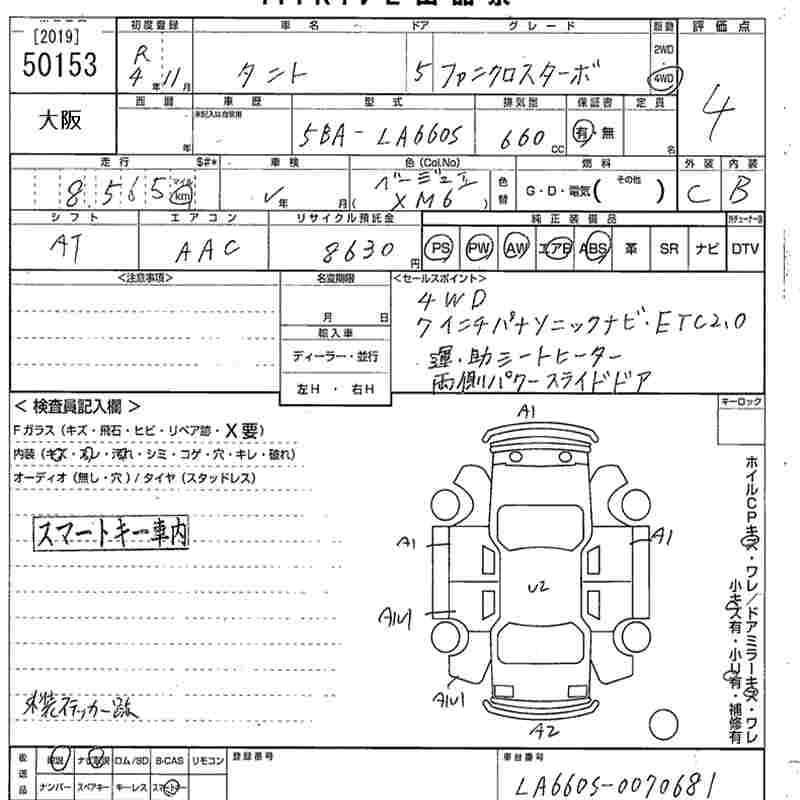 [2019]
50153
大阪
初度登録 車名 ドア グレード 駆動 評価点
R 4年 11月 タント 5 ファンクロスターボ 2WD 4WD 4
西暦 車歴 型式 排気量 保証書 定員
年 未記入は自家用 5BA-LA660S 660 CC 有・無 名
走行 $#* 車検 色(Col.No) 燃料 外装 内装
8,565 マイル km 年 月 ( ベージュII XM6 ) 色替 G・D・電気( その他 ) C B
シフト エアコン リサイクル預託金 純正装備品
AT AAC 8630円 PS PW AW エアB ABS 革 SR ナビ DTV
<注意事項> 名変期限 <セールスポイント>
月 日
輸入車
ディーラー・並行
左H ・ 右H
4WD
7インチパナソニックナビ・ETC2.0
運・助シートヒーター
両側パワースライドドア
キーロック
< 検査員記入欄 >
Fガラス(キズ・飛石・ヒビ・リペア跡・X要)
内装(キズ・スレ・汚れ・シミ・コゲ・穴・キレ・破れ)
オーディオ(無し・穴)/タイヤ(スタッドレス)
スマートキー車内
A1
A1
A1
U2
A1U1
A1U1
A2
ホイルCPキズ・ワレ/ドアミラーキズ・ワレ
小キズ有・小U有・補修有
ステッカー跡
後送品 取説 ナビ取説 ロム/SD B-CAS リモコン 登録番号 車台番号
ナンバー スペアキー キーレス スマートキー LA660S-0070681